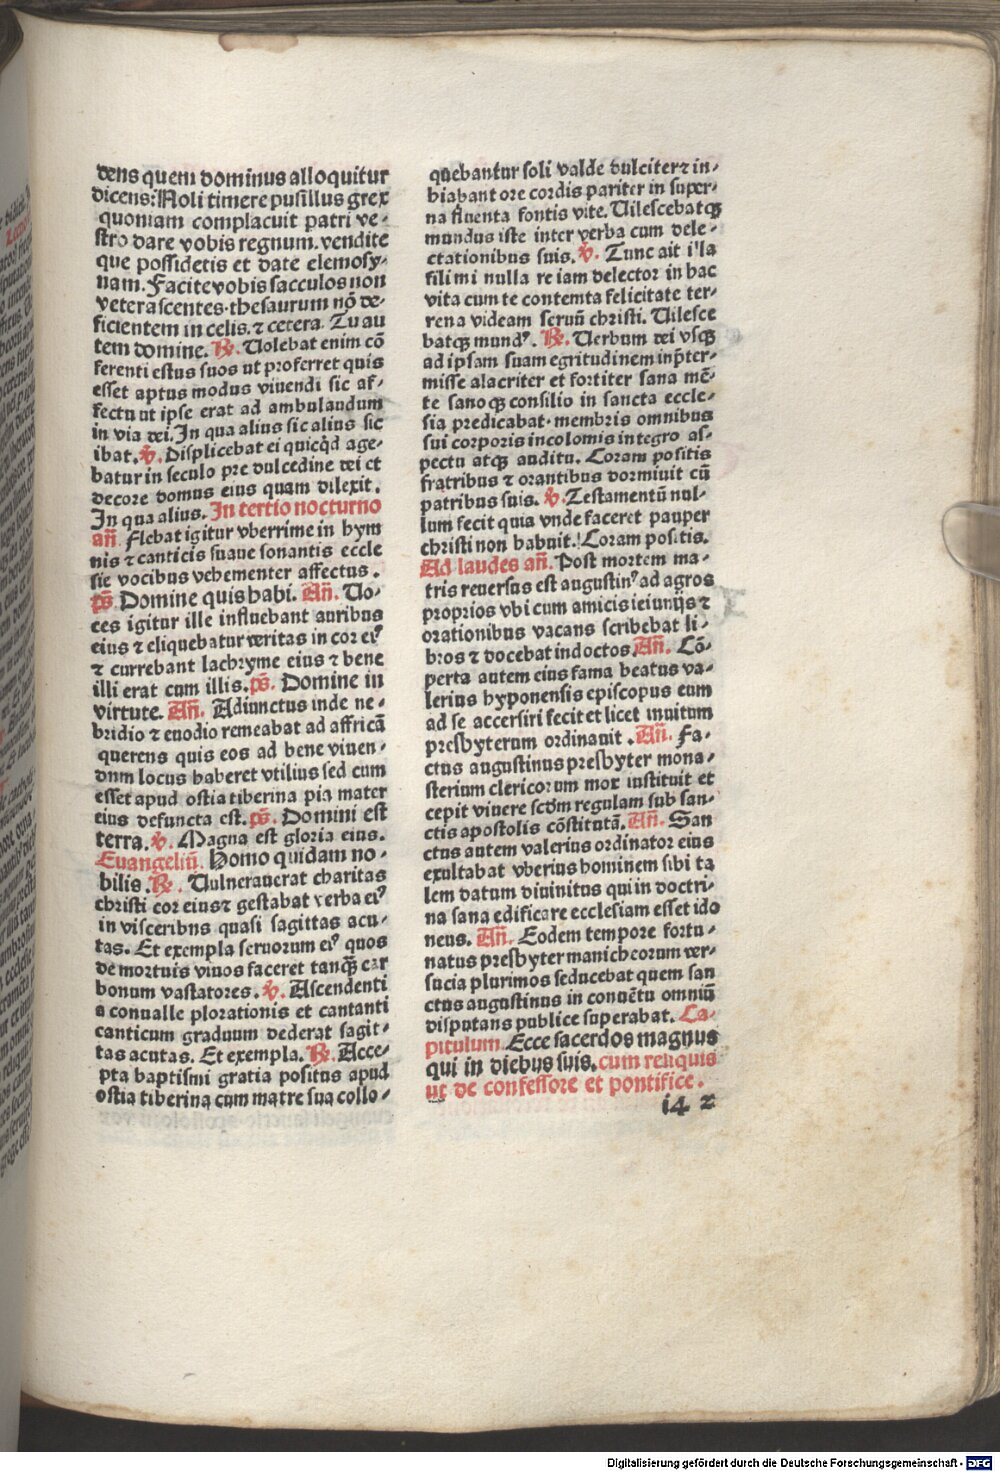 dens quem dominus alloquitur
dicens: Noli timere pusillus grex
quoniam complacuit patri ve-
stro dare vobis regnum. vendite
que possidetis et date elemosy-
nam. Facite vobis sacculos non
veterascentes. thesaurum nō de-
ficientem in celis. ⁊ cetera. Tu au
tem domine. ℟. Uolebat enim cō
ferenti estus suos ut proferret quis
esset aptus modus viuendi sic af-
fectu ut ipse erat ad ambulandum
in via dei. In qua alius sic alius sic
ibat. ℣. Displicebat ei quicq̇d age-
batur in seculo pre dulcedine dei et
decore domus eius quam dilexit.
In qua alius. In tertio nocturno
añ. Flebat igitur vberrime in hym
nis ⁊ canticis suaue sonantis eccle
sie vocibus vehementer affectus.
ps̄. Domine quis habi. Añ. Uo-
ces igitur ille influebant auribus
eius ⁊ eliquebatur veritas in cor eiꝰ
⁊ currebant lachryme eius ⁊ bene
illi erat cum illis. ps̄. Domine in
virtute. Añ. Adiunctus inde ne-
bridio ⁊ euodio remeabat ad affricā
querens quis eos ad bene viuen-
dum locus haberet vtilius sed cum
esset apud ostia tiberina pia mater
eius defuncta est. ps̄. Domini est
terra. ℣. Magna est gloria eius.
Euangeliū. Homo quidam no-
bilis. ℟. Uulnerauerat charitas
christi cor eius ⁊ gestabat verba eiꝰ
in visceribus quasi sagittas acu-
tas. Et exempla seruorum eiꝰ quos
de mortuis viuos faceret tanqꝫ car
bonum vastatores. ℣. Ascendenti
a conualle plorationis et cantanti
canticum graduum dederat sagit-
tas acutas. Et exempla. ℟. Acce-
pta baptismi gratia positus apud
ostia tiberina cum matre sua collo-
quebantur soli valde dulciter ⁊ in-
hiabant ore cordis pariter in super-
na fluenta fontis vite. Uilescebatqꝫ
mundus iste inter verba cum dele-
ctationibus suis. ℣. Tunc ait illa
fili mi nulla re iam delector in hac
vita cum te contemta felicitate ter-
rena videam seruū christi. Uilesce
batqꝫ mundꝰ. ℟. Uerbum dei vsqꝫ
ad ipsam suam egritudinem inp̄ter-
misse alacriter et fortiter sana mē-
te sanoqꝫ consilio in sancta eccle-
sia predicabat. membris omnibus
sui corporis incolomis integro as-
pectu atqꝫ auditu. Coram positis
fratribus ⁊ orantibus dormiuit cū
patribus suis. ℣. Testamentū nul-
lum fecit quia vnde faceret pauper
christi non habuit. Coram positis.
Ad laudes añ. Post mortem ma-
tris reuersus est augustinꝰ ad agros
proprios vbi cum amicis ieiunijs ⁊
orationibus vacans scribebat li-
bros ⁊ docebat indoctos. Añ. Cō-
perta autem eius fama beatus va-
lerius hyponensis episcopus eum
ad se accersiri fecit et licet inuitum
presbyterum ordinauit. Añ. Fa-
ctus augustinus presbyter mona-
sterium clericorum mox instituit et
cepit viuere scdm̄ regulam sub san-
ctis apostolis cōstitutā. Añ. San
ctus autem valerius ordinator eius
exultabat vberius hominem sibi ta
lem datum diuinitus qui in doctri-
na sana edificare ecclesiam esset ido
neus. Añ. Eodem tempore fortu-
natus presbyter manicheorum ver-
sucia plurimos seducebat quem san
ctus augustinus in conuētu omniū
disputans publice superabat. Ca-
pitulum. Ecce sacerdos magnus
qui in diebus suis. cum reliquis
ut de confessore et pontifice.
i4 z
Digitalisierung gefördert durch die Deutsche Forschungsgemeinschaft - DFG